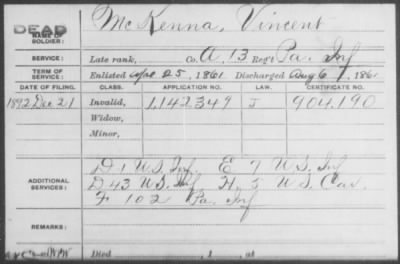 DEAD
NAME OF SOLDIER: McKenna, Vincent
SERVICE: Late rank, Co. A, 13 Reg't Pa. Inf
TERM OF SERVICE: Enlisted Apr 25, 1861 Discharged Aug 6, 1861
DATE OF FILING. CLASS. APPLICATION NO. LAW. CERTIFICATE NO.
1892 Dec 21 Invalid, 1,142,349 J 904,190
Widow,
Minor,
D 1 U.S. Inf, E 7 U.S. Inf
ADDITIONAL SERVICES: D 43 U.S. Inf H. 5 U.S. Cav.
F 102 Pa. Inf
REMARKS:
Died , 1 , at